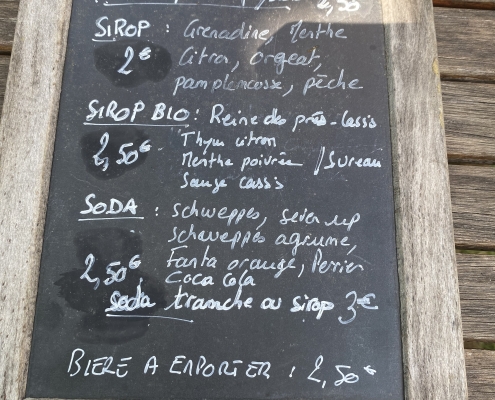 2,50
SIROP : Grenadine, Menthe
2€ Citron, orgeat,
pamplemousse, pêche
SIROP BIO : Reine des prés-Cassis
Thym citron
2,50€ Menthe poivrée / Sureau
Sauge cassis
SODA : Schweppes, Seven up
Schweppes agrume,
2,50€ Fanta orange, Perrier
Coca Cola
Soda tranche ou sirop 3€
BIERE A EMPORTER : 2,50€